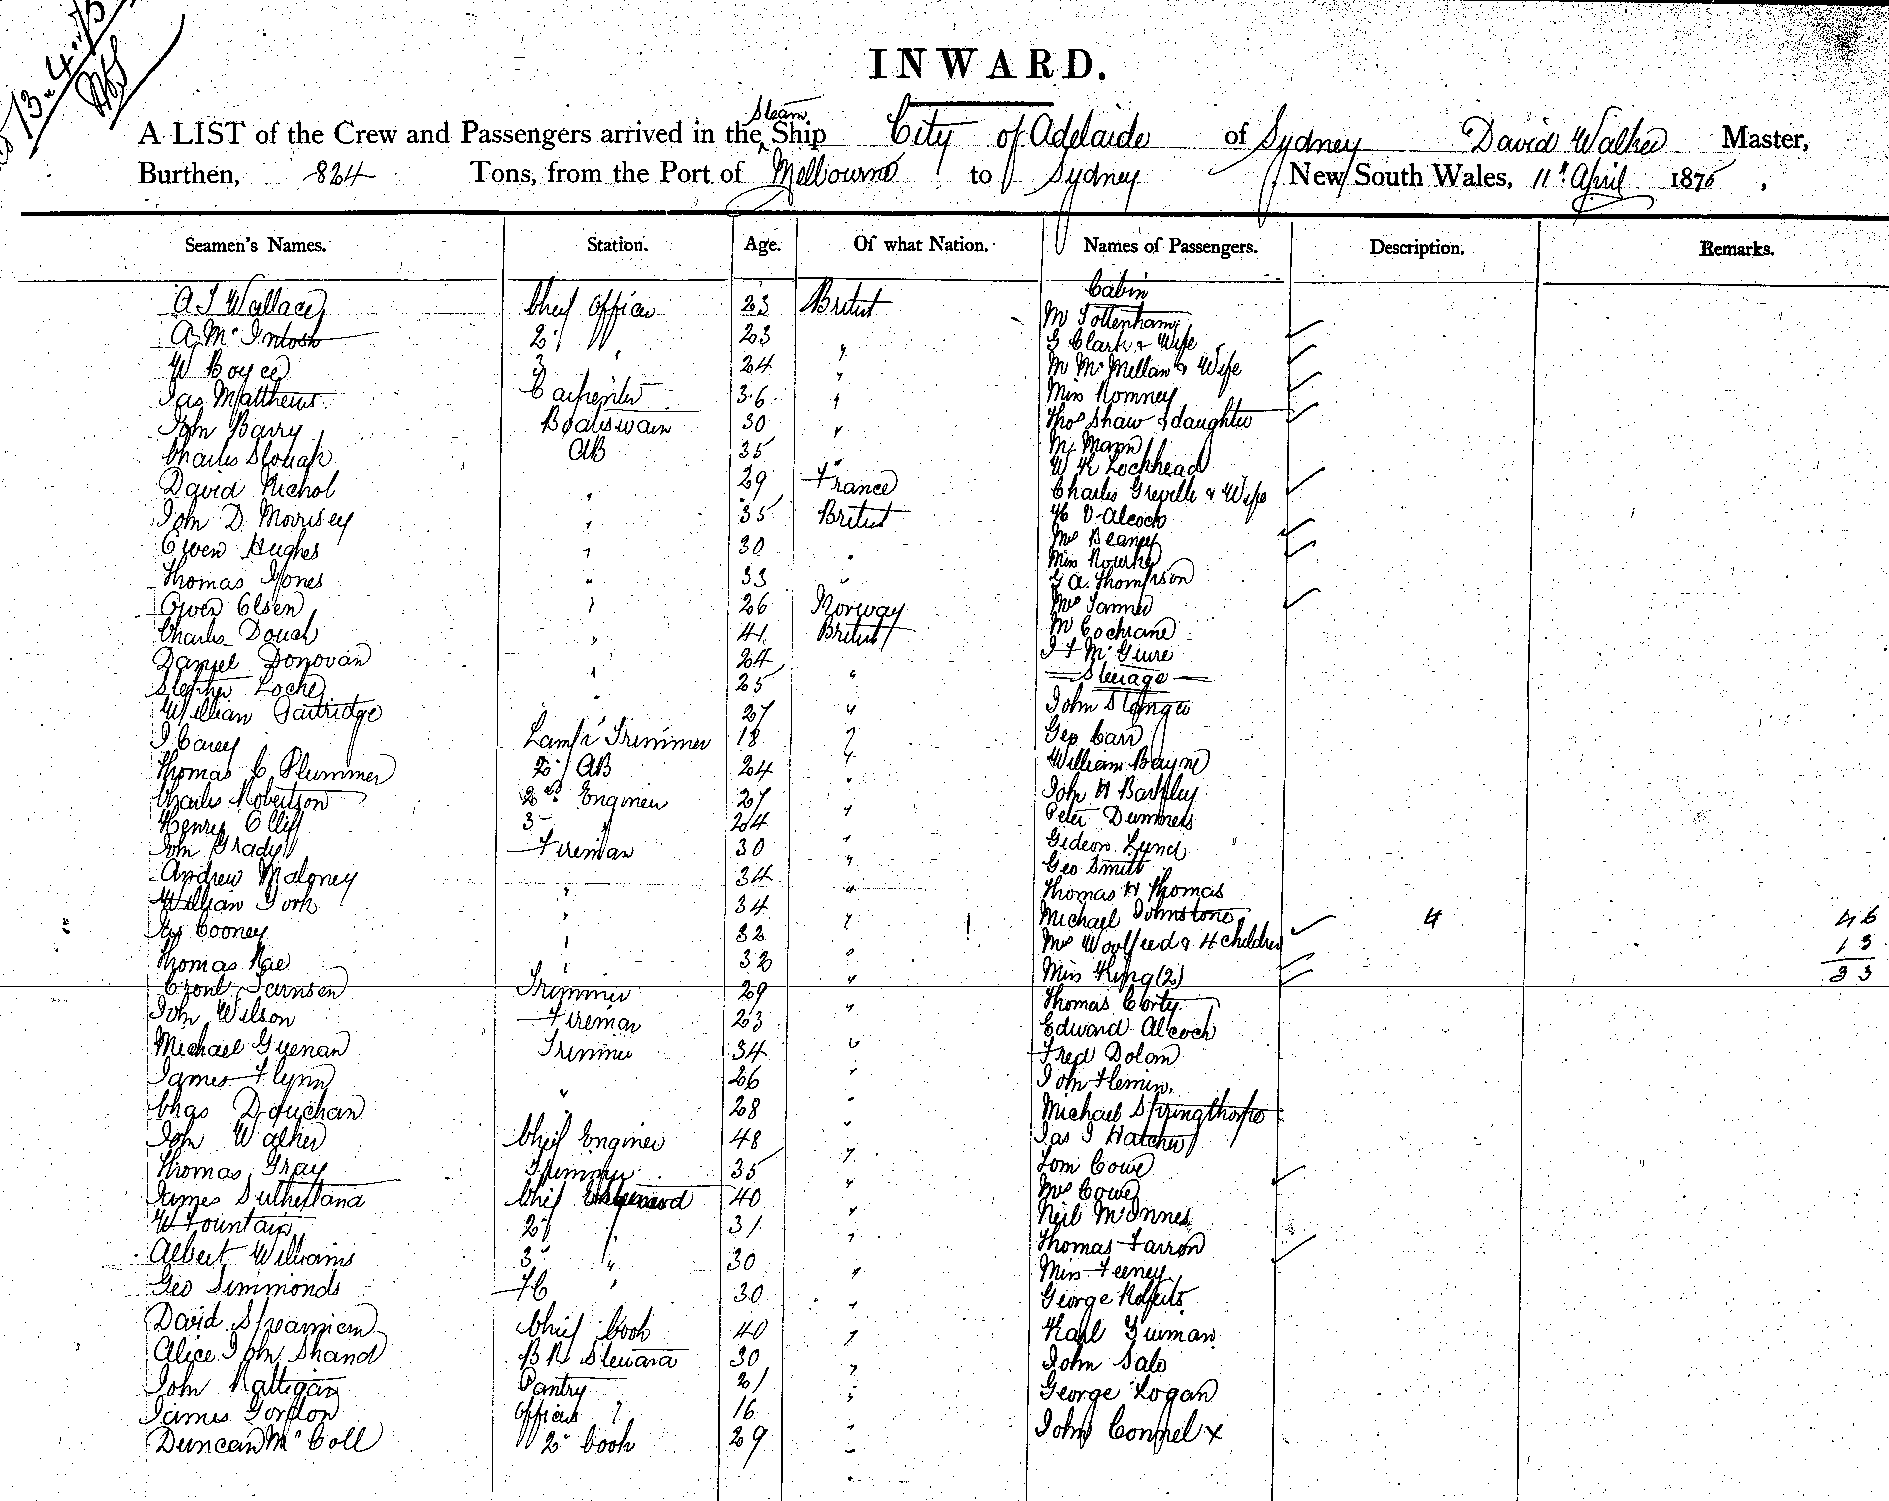 13.4.75
INWARD.
A LIST of the Crew and Passengers arrived in the Steam Ship City of Adelaide of Sydney David Walker Master,
Burthen, 824 Tons, from the Port of Melbourne to Sydney New South Wales, 11th April 1875
Seamen's Names. Station. Age. Of what Nation. Names of Passengers. Description. Remarks.
Cabin
A J Wallace Chief Officer 23 British Mr Tottenham
A McIntosh 2d " 23 " G Clark & Wife
W Boyce 3 " 24 " Mr McMellan & Wife
Jas Matthews Carpenter 36 " Miss Romney
John Barry Boatswain 30 " Thos Shaw & daughter
Charles Slouah AB 35 " Mr Mann
W K Lockhead
David Nichol " 29 France Charles Greville & Wife
John D Morrisey " 35 British H V Alcock
Owen Hughes " 30 " Mrs Beaney
Miss Rourke
Thomas Jones " 33 " G A Thompson
Owen Olsen " 26 Norway Mrs Tanner
Charles Douah " 41 British Mr Cochrane
Daniel Donovan " 24 " J F McGuire
Stephen Locke " 25 " Steerage
William Partridge " 27 " John Stonger
J Carey Lamp Trimmer 18 " Geo Carr
Thomas C Plummer 2d AB 24 " William Bayne
Charles Robertson 2nd Engineer 27 " John H Barkley
Henry Cliff 3 " 24 " Peter
John Grady Fireman 30 " Gideon Lund
Andrew Maloney " 34 " Geo Smith
William York " 34 " Thomas H Thomas
Jas Cooney " 32 " Michael Johnstone 4 46
Mrs Woolfeed & 4 children 13
Thomas Rae " 32 " Miss King (2) 33
Jamsen Trimmer 29 " Thomas Corty
John Wilson Fireman 23 " Edward Alcock
Michael Guenan Trimmer 34 " Fred Dolan
James Flynn " 26 " John Flemin
Chas Douchan " 28 " Michael Springthorpe
John Walker Chief Engineer 48 " Jas J Hatcher
Thomas Gray Trimmer 35 " Tom Cowe
James Sutherland Chief Steward 40 " Mrs Cowe
W Fountain 2d " 31 " Neil McInnes
Albert Williams 3 " 30 " Thomas Farron
Geo Simmonds FC " 30 " Miss Feeney
George Roberts
David Spearmien Chief Cook 40 " Karl Guiman
Alice John Shand BR Steward 30 " John Salo
John Rattigan Pantry 21 " George Logan
James Gordon Officers " 16 " John Connel x
Duncan McColl 2d Cook 29 "